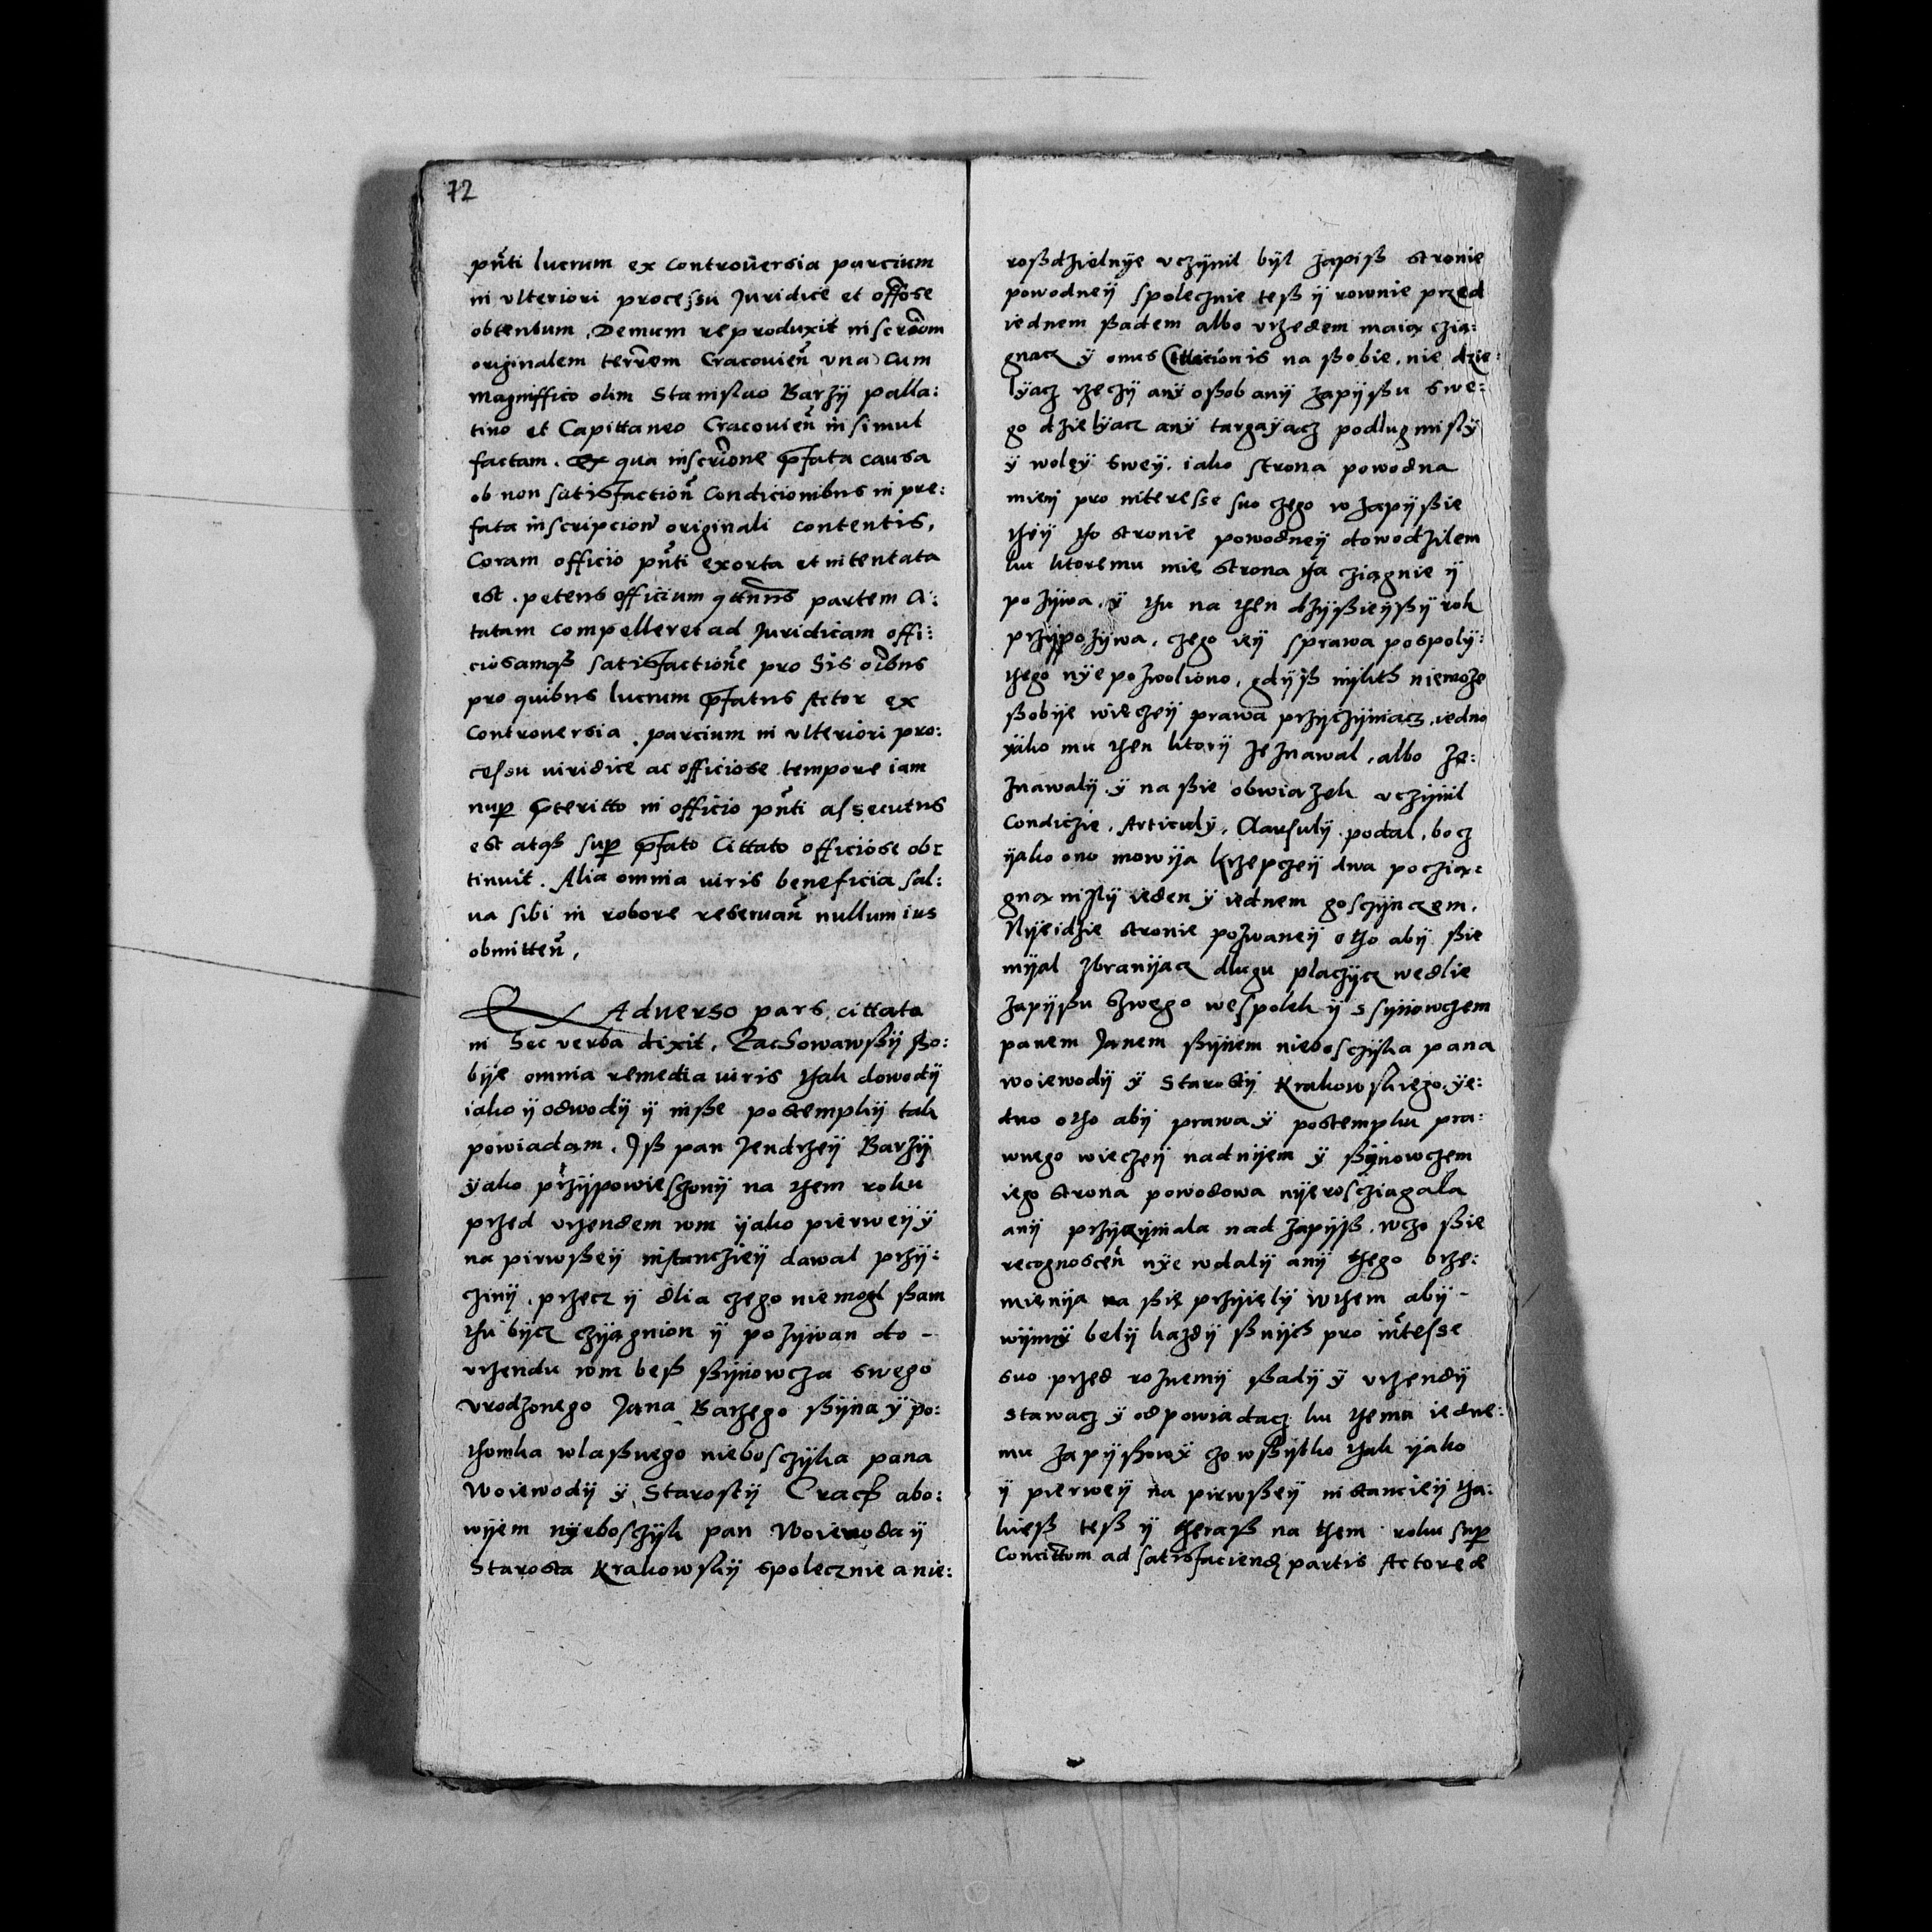 72
pñti lucrum ex controuersia parcium
in vlteriori processu Juridice et offose
obtentum. Demum reproduxit inscrõm
originalem terrem Cracouieñ vna cum
magniffico olim Stanislao Barzÿ palla:
tino et Capittaneo Cracouieñ insimul
factam. Ex qua inscrione pfata causa
ob non satisfactioñ condicionibus in pre:
fata inscripcioñ originali contentis,
Coram officio pñti exorta et intentata
est. petens officium partem Ci:
tatam compelleret ad Juridicam offi:
ciosamqß satisfactione pro his oibus
pro quibus lucrum pfatus Actor ex
controuersia parcium in vlteriori pro:
cessu iuridice ac officiose tempore iam
nup pteritto in officio pñti assecutus
est atqß sup pfato Cittato officiose obt
tinuit. Alia omnia iuris beneficia sal:
ua sibi in robore reseruañ nullum ius
obmitteñ,
Ex Aduerso pars cittata
in hec verba dixit. Zachowawssÿ ßo:
bÿe omnia remedia iuris thak dowodÿ
iako ÿ odwodÿ ÿ inße postempkÿ tak
powiadam. Jß pan Jendrzeÿ Barzÿ
ÿako przÿpowiesczonÿ na them roku
przed vrzendem wm ÿako pierweÿ ÿ
na pirwßeÿ instancziеÿ dawal przÿ:
czinÿ, przecz ÿ dlia czego nie mogl ßam
thu bÿcz czÿągnion ÿ pozÿwan do -
vrzendu wm beß ßÿnowcza swego
vrodzonego Jana Barzego ßÿna ÿ po:
thomka wlaßnego nieboszczÿka pana
Woiewodÿ ÿ Starostÿ Cracß abo:
wÿem nÿebosczÿk pan Woiewoda ÿ
Starosta Krakowskÿ spolecznie a nie:
roßdzielnÿe vczÿnil bÿl zapiß stronie
powodneÿ spolecznie teß ÿ rownie przed
iednem ßadem albo vrzedem maią czią:
gnącz ÿ onus Cittacionis na ßobie, nie dzie:
lÿącz rzeczÿ anÿ oßob anÿ zapÿßu swe:
go dzielÿącz anÿ targaÿącz podlug mislÿ
ÿ woleÿ sweÿ. iako strona powodna
mieni pro interesse suo czego w zapÿßie
theÿ tho stronie powodneÿ dowodzilem
ku ktoremu mie strona tha cziągnie ÿ
pozÿwa, ÿ thu na then dzÿßieÿßÿ rok
przÿpozÿwa, czego ieÿ sprawa pospolÿ:
thego nÿe pozwoliono, gdÿß nikth niemoze
ßobÿe wieczeÿ prawa przÿczÿniacz, iedno
ÿako mu then ktorÿ zeznawal, albo ze:
znawalÿ ÿ na ßie obwiązek vczÿnil
Condiczie, Articulÿ, Clausulÿ podal, bocz
ÿako ono mowÿa krzepczeÿ dwa pocziąą:
gną nizlÿ ieden ÿ iednem gosczÿnczem.
Nÿeidzie stronie pozwaneÿ otho abÿ ßie
mÿal zbranÿacz dlugu placzÿcz wedlie
zapÿßu szwego wespolek ÿ s sÿnowczem
panem Janem ßÿnem nieboszczÿka pana
woiewodÿ ÿ starostÿ Krakowskiego, ÿe:
dno otho abÿ prawa ÿ postempku pra:
wnego wieczeÿ nadnÿem ÿ ßÿnowczem
iego strona powodowa nÿerosczіągala
anÿ przÿczÿniala nad zapÿß, wczo ßie
recognosceñ nÿe wdalÿ anÿ thego brze:
mienÿa na ßie przÿielÿ wthem abÿ -
winnÿ belÿ kazdÿ ßnÿch pro intesse
suo przed roznemÿ ßadÿ ÿ vrzendÿ
stawacz ÿ odpowiadacz ku themu iedne:
mu zapÿßowÿ czo wßÿtko thak ÿako
ÿ pierweÿ na pirwßeÿ instancieÿ tha:
kieß teß ÿ theraß na them roku sup
Concittom ad satisfaciend partis Actoreæ